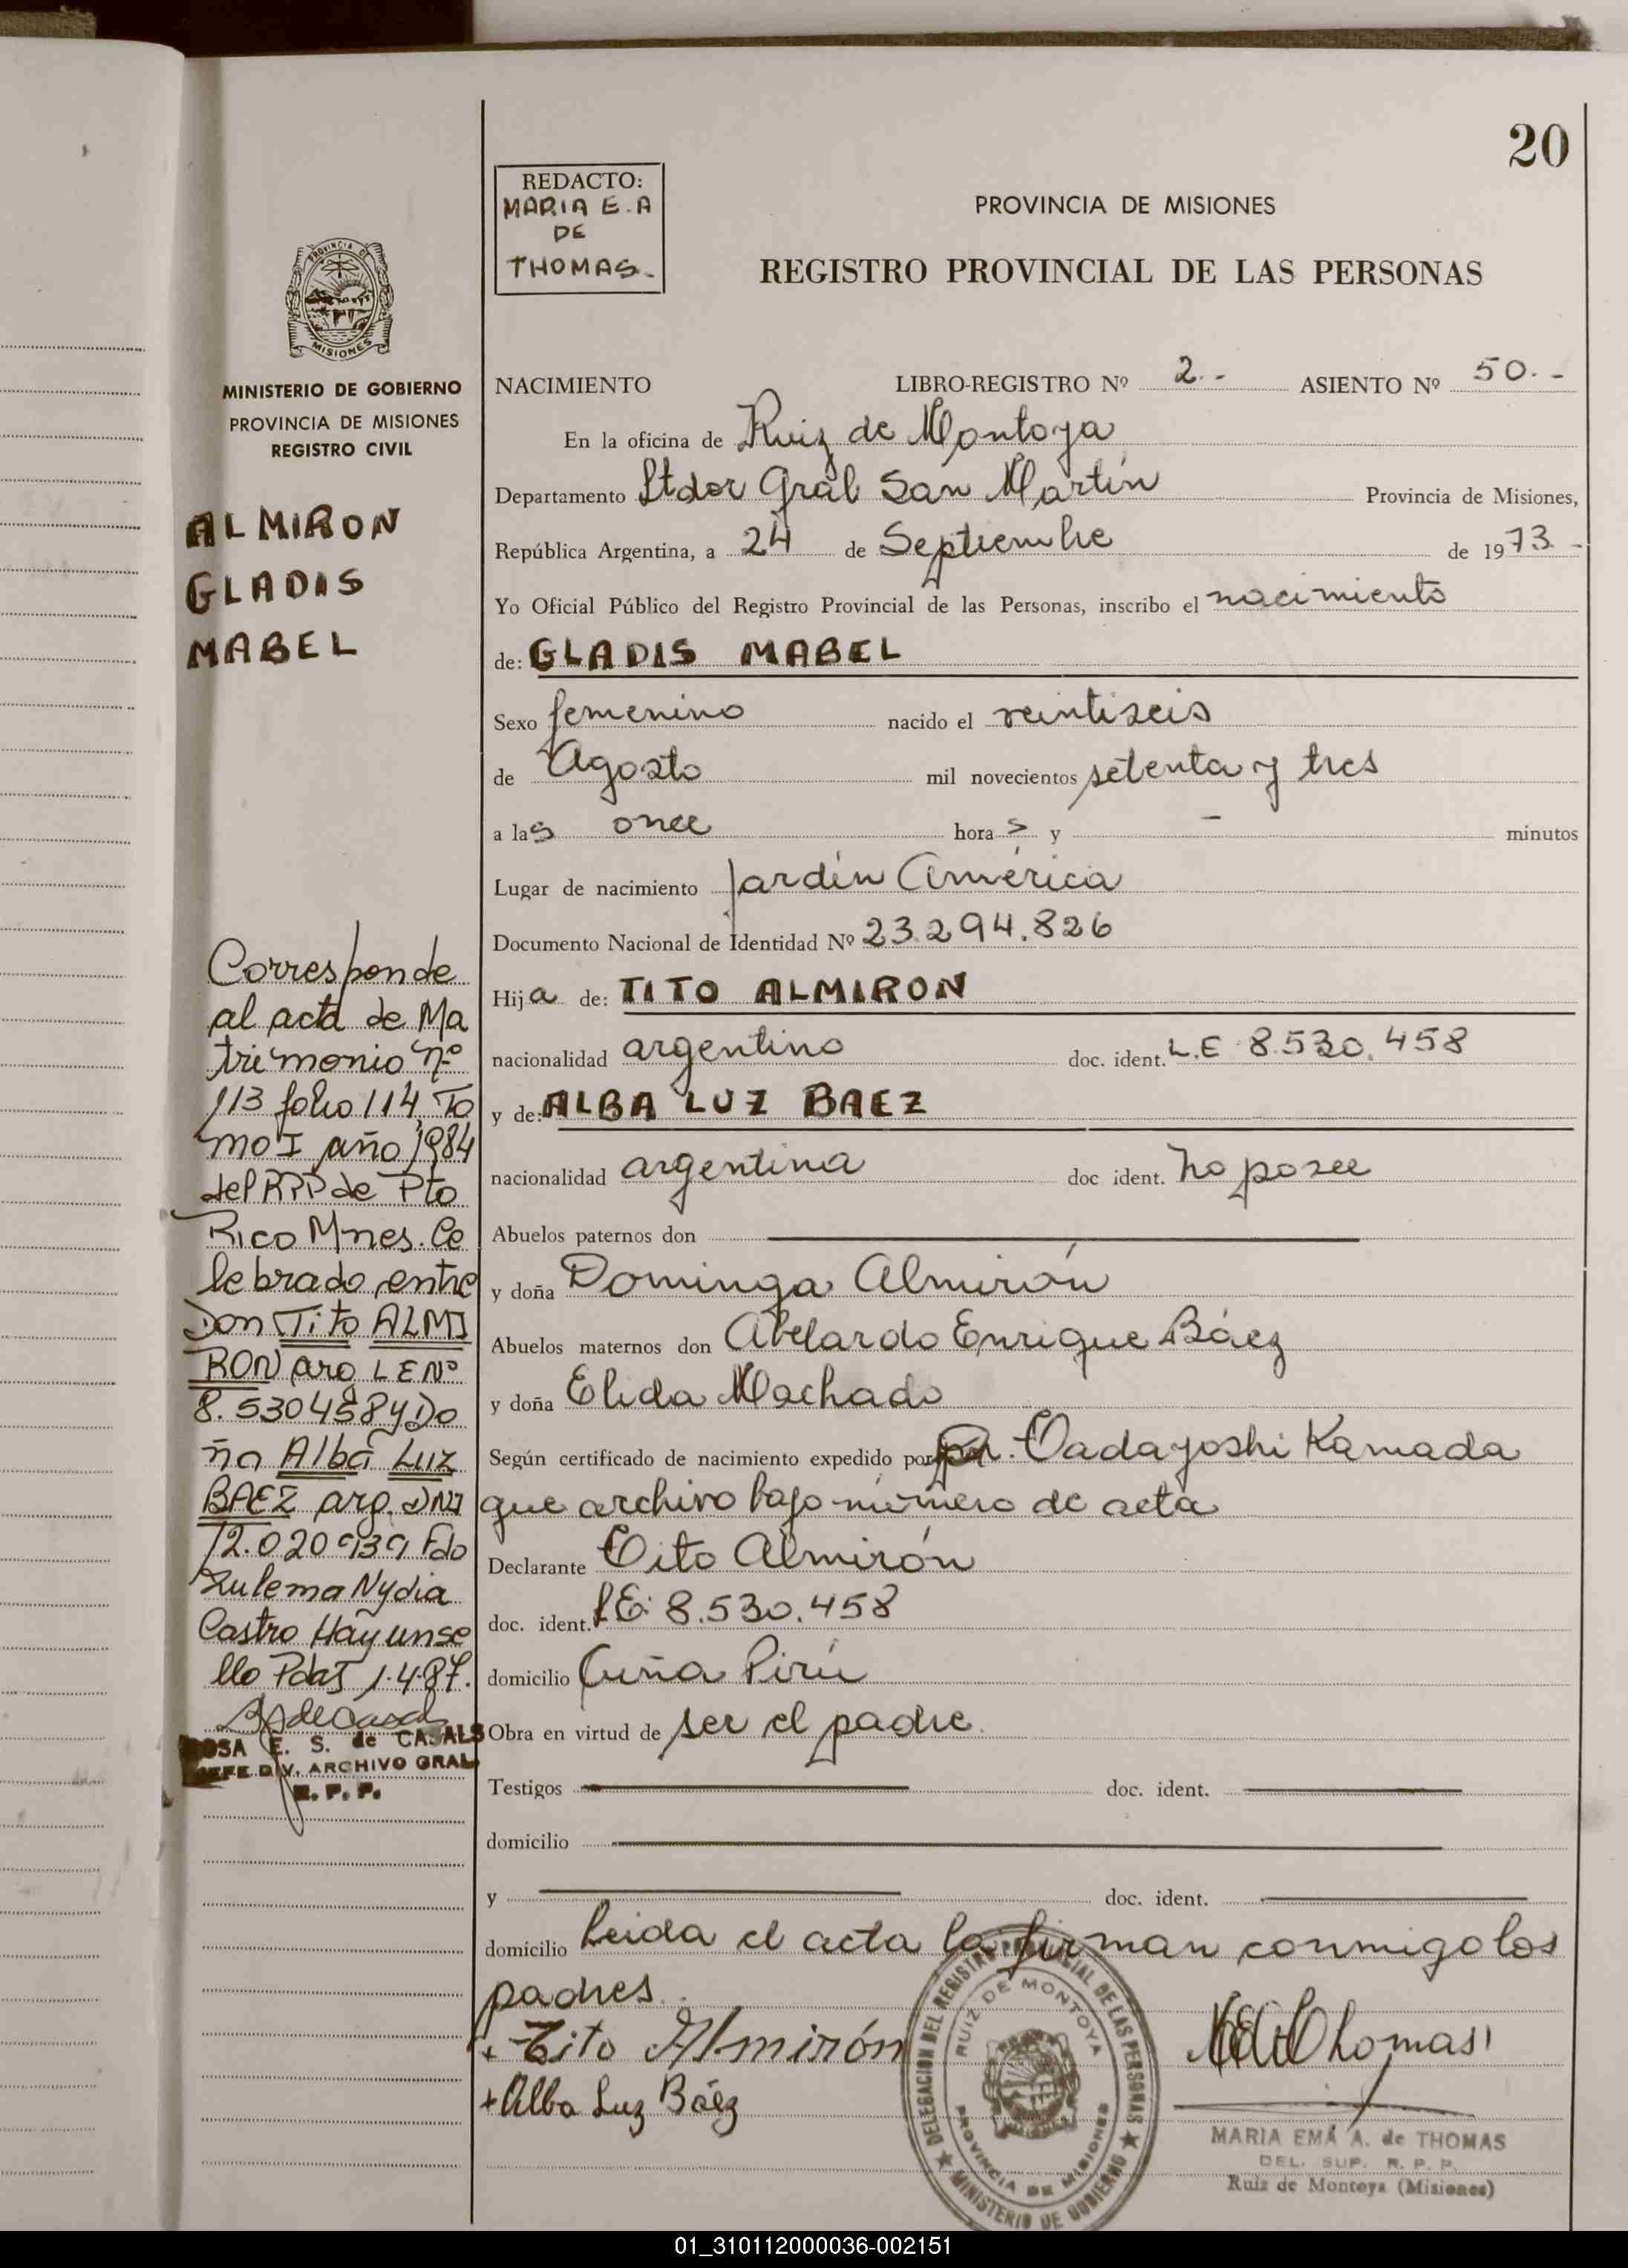 20
REDACTO:
MARIA E. A
DE
THOMAS.-
PROVINCIA DE MISIONES
REGISTRO PROVINCIAL DE LAS PERSONAS
PROVINCIA DE
MISIONES
MINISTERIO DE GOBIERNO
PROVINCIA DE MISIONES
REGISTRO CIVIL
ALMIRON
GLADIS
MABEL
NACIMIENTO LIBRO-REGISTRO Nº 2.- ASIENTO Nº 50.-
En la oficina de Ruiz de Montoya
Departamento Ltdor Gral San Martín Provincia de Misiones,
República Argentina, a 24 de Septiembre de 1973.-
Yo Oficial Público del Registro Provincial de las Personas, inscribo el nacimiento
de: GLADIS MABEL
Sexo femenino nacido el veintiseis
de Agosto mil novecientos setenta y tres
a las once horas y - minutos
Lugar de nacimiento Jardín América
Documento Nacional de Identidad Nº 23.294.826
Hija de: TITO ALMIRON
nacionalidad argentino doc. ident. L.E 8.530.458
y de: ALBA LUZ BAEZ
nacionalidad argentina doc ident. no posee
Abuelos paternos don
y doña Dominga Almirón
Abuelos maternos don Abelardo Enrique Báez
y doña Elida Machado
Según certificado de nacimiento expedido por Dr. Tadayoshi Kamada
que archivo bajo número de acta
Declarante Tito Almirón
doc. ident. LE: 8.530.458
domicilio Cuña Pirú
Obra en virtud de ser el padre.
Testigos doc. ident.
domicilio
y doc. ident.
domicilio Leida el acta la firman conmigo los
padres.
+ Tito Almirón
+ Alba Luz Báez
Thomas
MARIA EMA A. de THOMAS
DEL. SUP. R. P. P.
Ruiz de Montoya (Misiones)
DELEGACION DEL REGISTRO PROVINCIAL DE LAS PERSONAS
RUIZ DE MONTOYA
PROVINCIA DE MISIONES
MINISTERIO DE GOBIERNO
Corresponde
al acta de Ma
trimonio nº
113 folio 114, To
mo I año 1984
del RPP de Pto
Rico Mnes. Ce
lebrado entre
Don Tito ALMI
RON arg LE Nº
8.530458 y Do
ña Alba Luz
BAEZ arg. DNI
12.020939 Fdo
Zulema Nydia
Castro Hay un se
llo Pdas 1.4.87.
ROSA E. S. de CASALS
JEFE DIV. ARCHIVO GRAL
R. P. P.
01_310112000036-002151